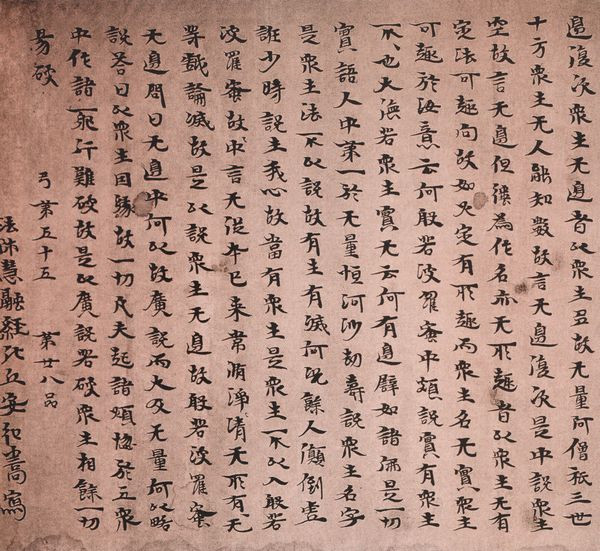 邊復次衆生无邊者以衆生多故无量阿僧祇三世
十方衆生无人能知數故言无邊復次是中說衆生
空故言无邊但強為作名亦无所趣者以衆生无有
定法可趣向故如火定有所趣而衆生名无實衆生
可趣於汝意云何般若波羅蜜中頗說實有衆生
不不也大德若衆生實无云何有邊譬如諸佛是一切
實語人中第一於无量恒河沙劫壽說衆生名字
是衆生法不以說故有生有滅何況餘人顛倒虛
誑少時說生我心故當有衆生是衆生不以入般若
波羅蜜故中言无從本已来常清淨清无所有无
等戲論滅故是以說衆生无邊故般若波羅蜜
无邊問曰无邊中何以故廣說而大及无量何以略
說答曰以衆生因緣故一切凡夫起諸煩惱於五衆
中作諸邪行難破故是以廣說若破衆生相餘一切
易破
弓第五十五 第廿八品
法師慧融經比丘安弘嵩寫